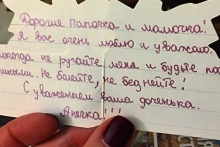 Дорогие папочка и мамочка!
Я вас очень люблю и уважаю.
никогда не ругайте меня и будьте
Не болейте, не беднейте!
С уважением ваша доченька.
Анечка!!!